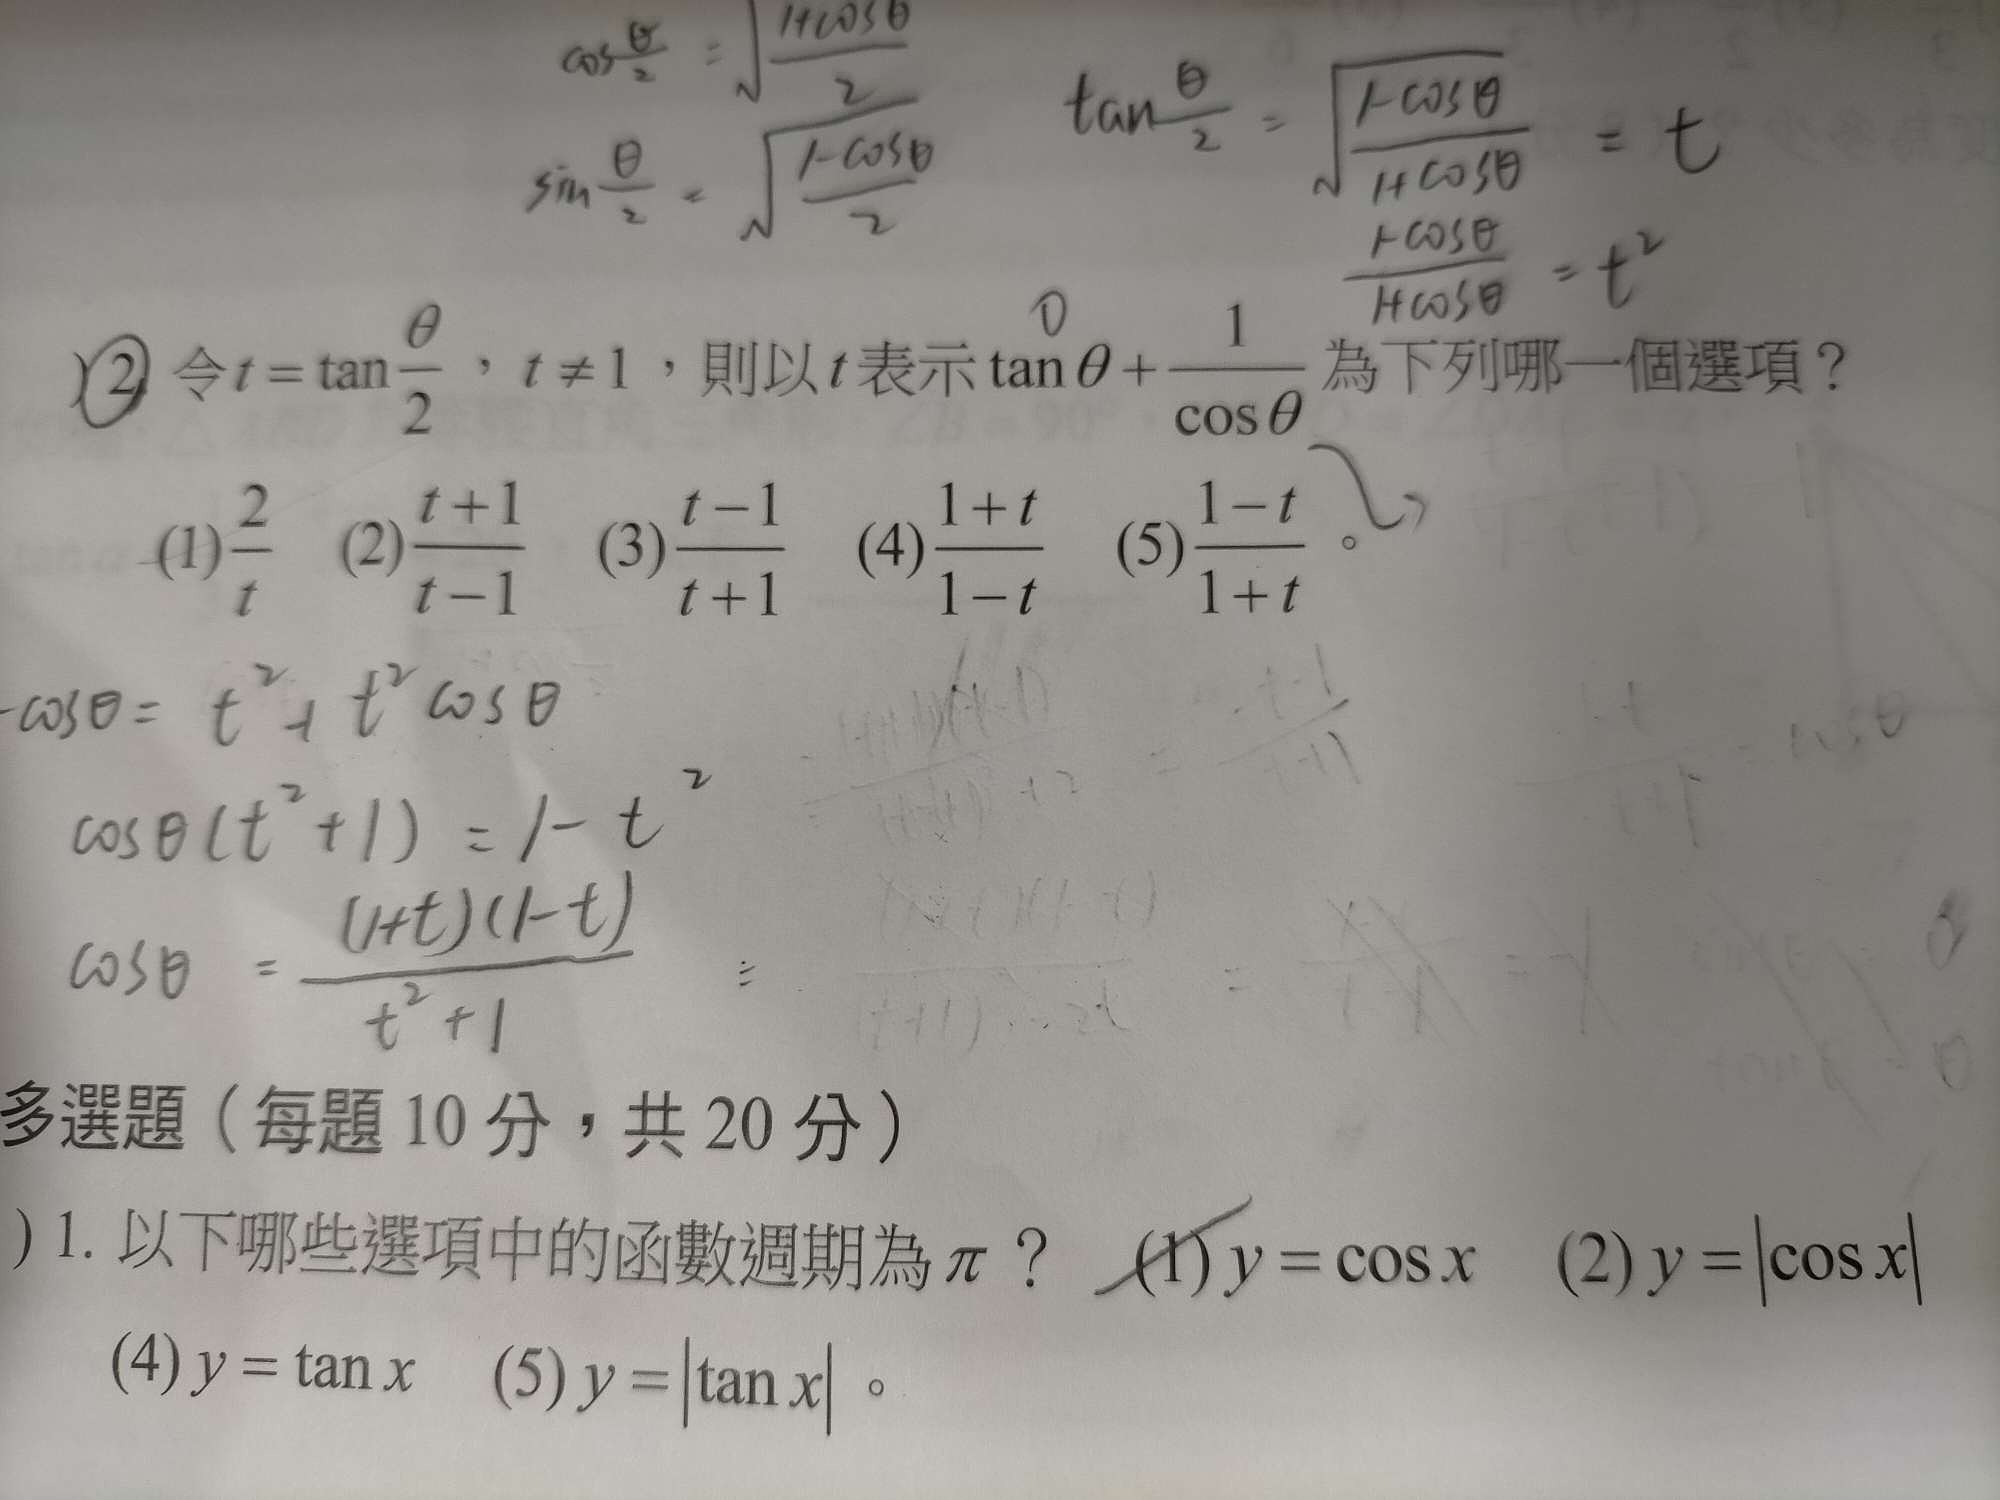 cos θ/2 = √((1+cosθ)/2)
sin θ/2 = √((1-cosθ)/2)
tan θ/2 = √((1-cosθ)/(1+cosθ)) = t
(1-cosθ)/(1+cosθ) = t²
)2. 令 t = tan θ/2，t ≠ 1，則以 t 表示 tan θ + 1/cos θ 為下列哪一個選項？
(1) 2/t (2) (t+1)/(t−1) (3) (t−1)/(t+1) (4) (1+t)/(1−t) (5) (1−t)/(1+t)。
-cosθ = t² + t² cosθ
cosθ(t²+1) = 1-t²
cosθ = (1+t)(1-t)/(t²+1) =
多選題（每題 10 分，共 20 分）
) 1. 以下哪些選項中的函數週期為 π？ (1) y = cos x (2) y = |cos x|
(4) y = tan x (5) y = |tan x|。